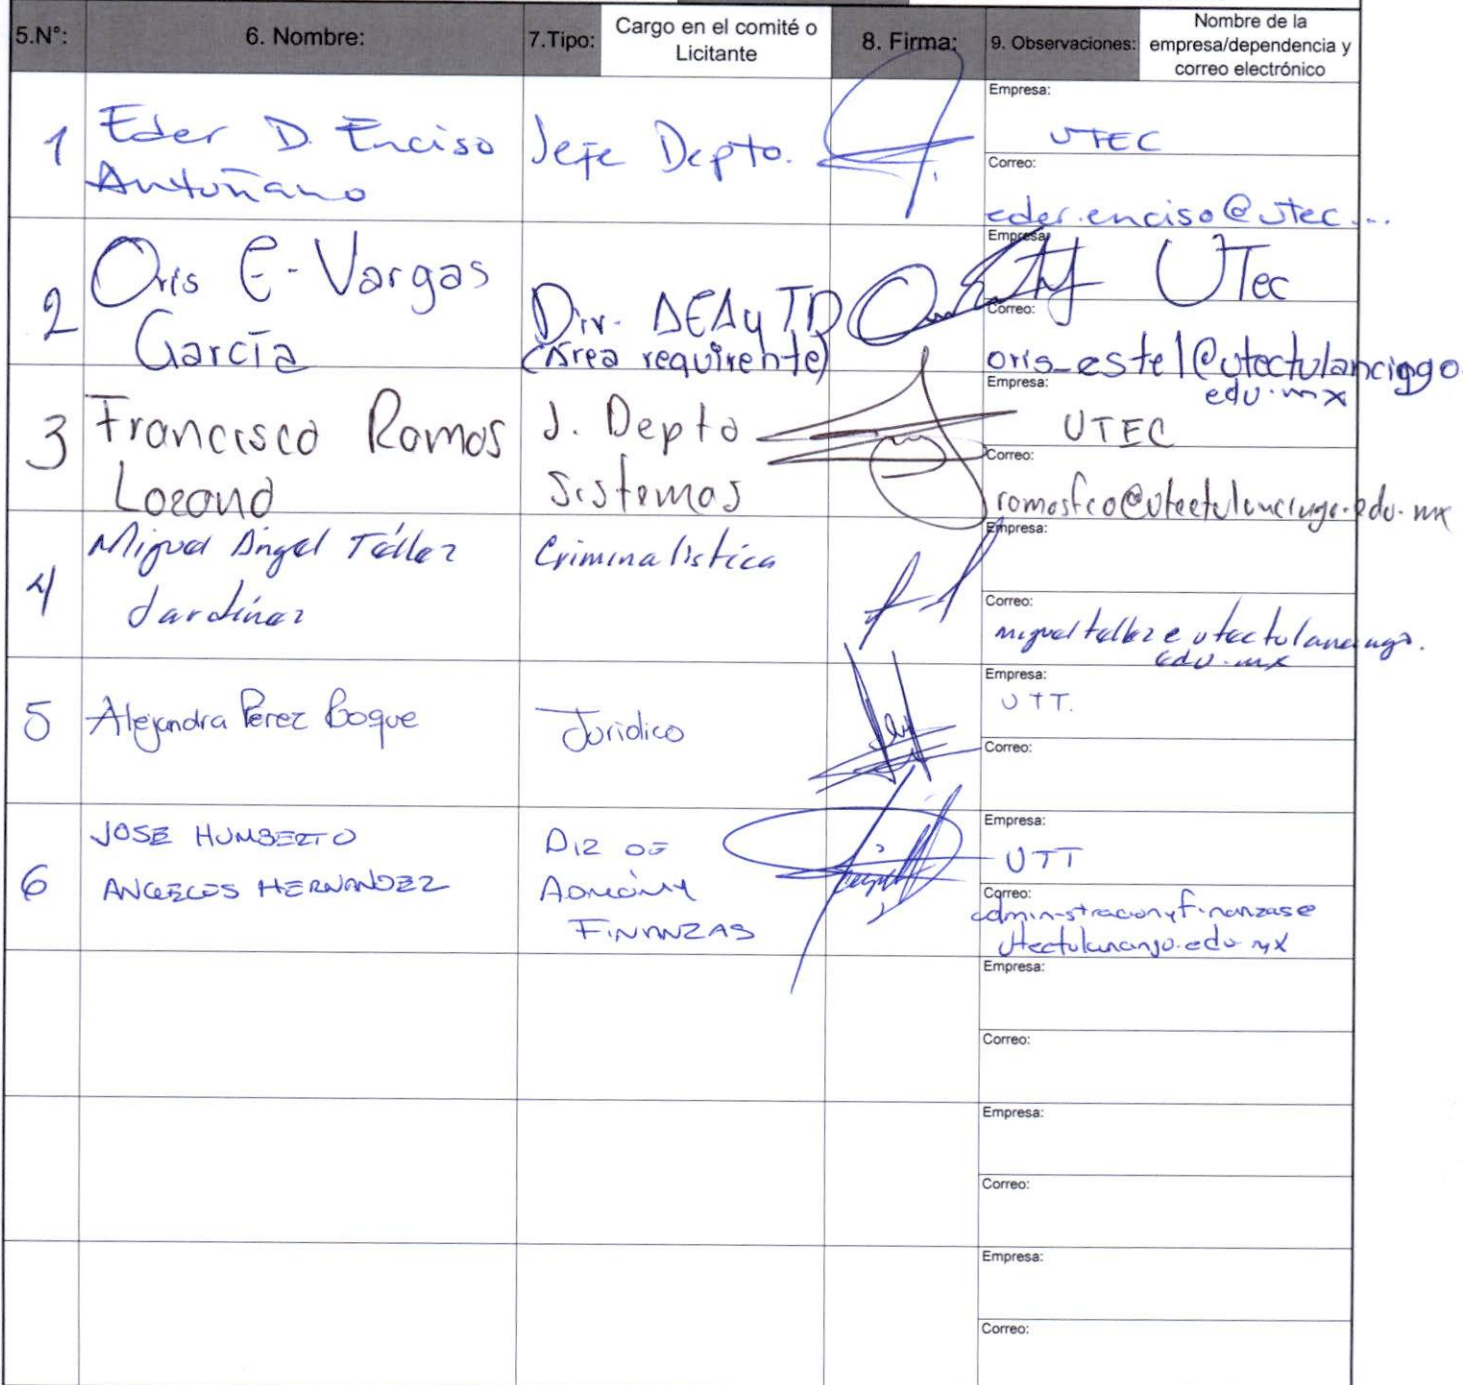 5.N°: 6. Nombre: 7.Tipo: Cargo en el comité o Licitante 8. Firma: 9. Observaciones: Nombre de la empresa/dependencia y correo electrónico
1 Eder D. Enciso Antuñano
Jefe Depto.
Empresa:
UTEC
Correo:
eder.enciso@utec...
2 Oris E. Vargas
García
Div. AEAyTD
(Área requirente)
Empresa:
UTec
Correo:
oris_estel@utectulancingo.
edu.mx
3 Francisco Ramos
Lozano
J. Depto
Sistemas
Empresa:
UTEC
Correo:
ramosfco@utectulancingo.edu.mx
4 Miguel Ángel Téllez
Jardínez
Criminalistica
Empresa:
Correo:
migueltellez@utectulancingo.
edu.mx
5 Alejandra Perez Roque
Juridico
Empresa:
UTT.
Correo:
6 JOSE HUMBERTO
ANGELES HERNANDEZ
DIR DE
ADMÓN Y
FINANZAS
Empresa:
UTT
Correo:
administracionyfinanzas@
utectulancingo.edu.mx
Empresa:
Correo:
Empresa:
Correo:
Empresa:
Correo: